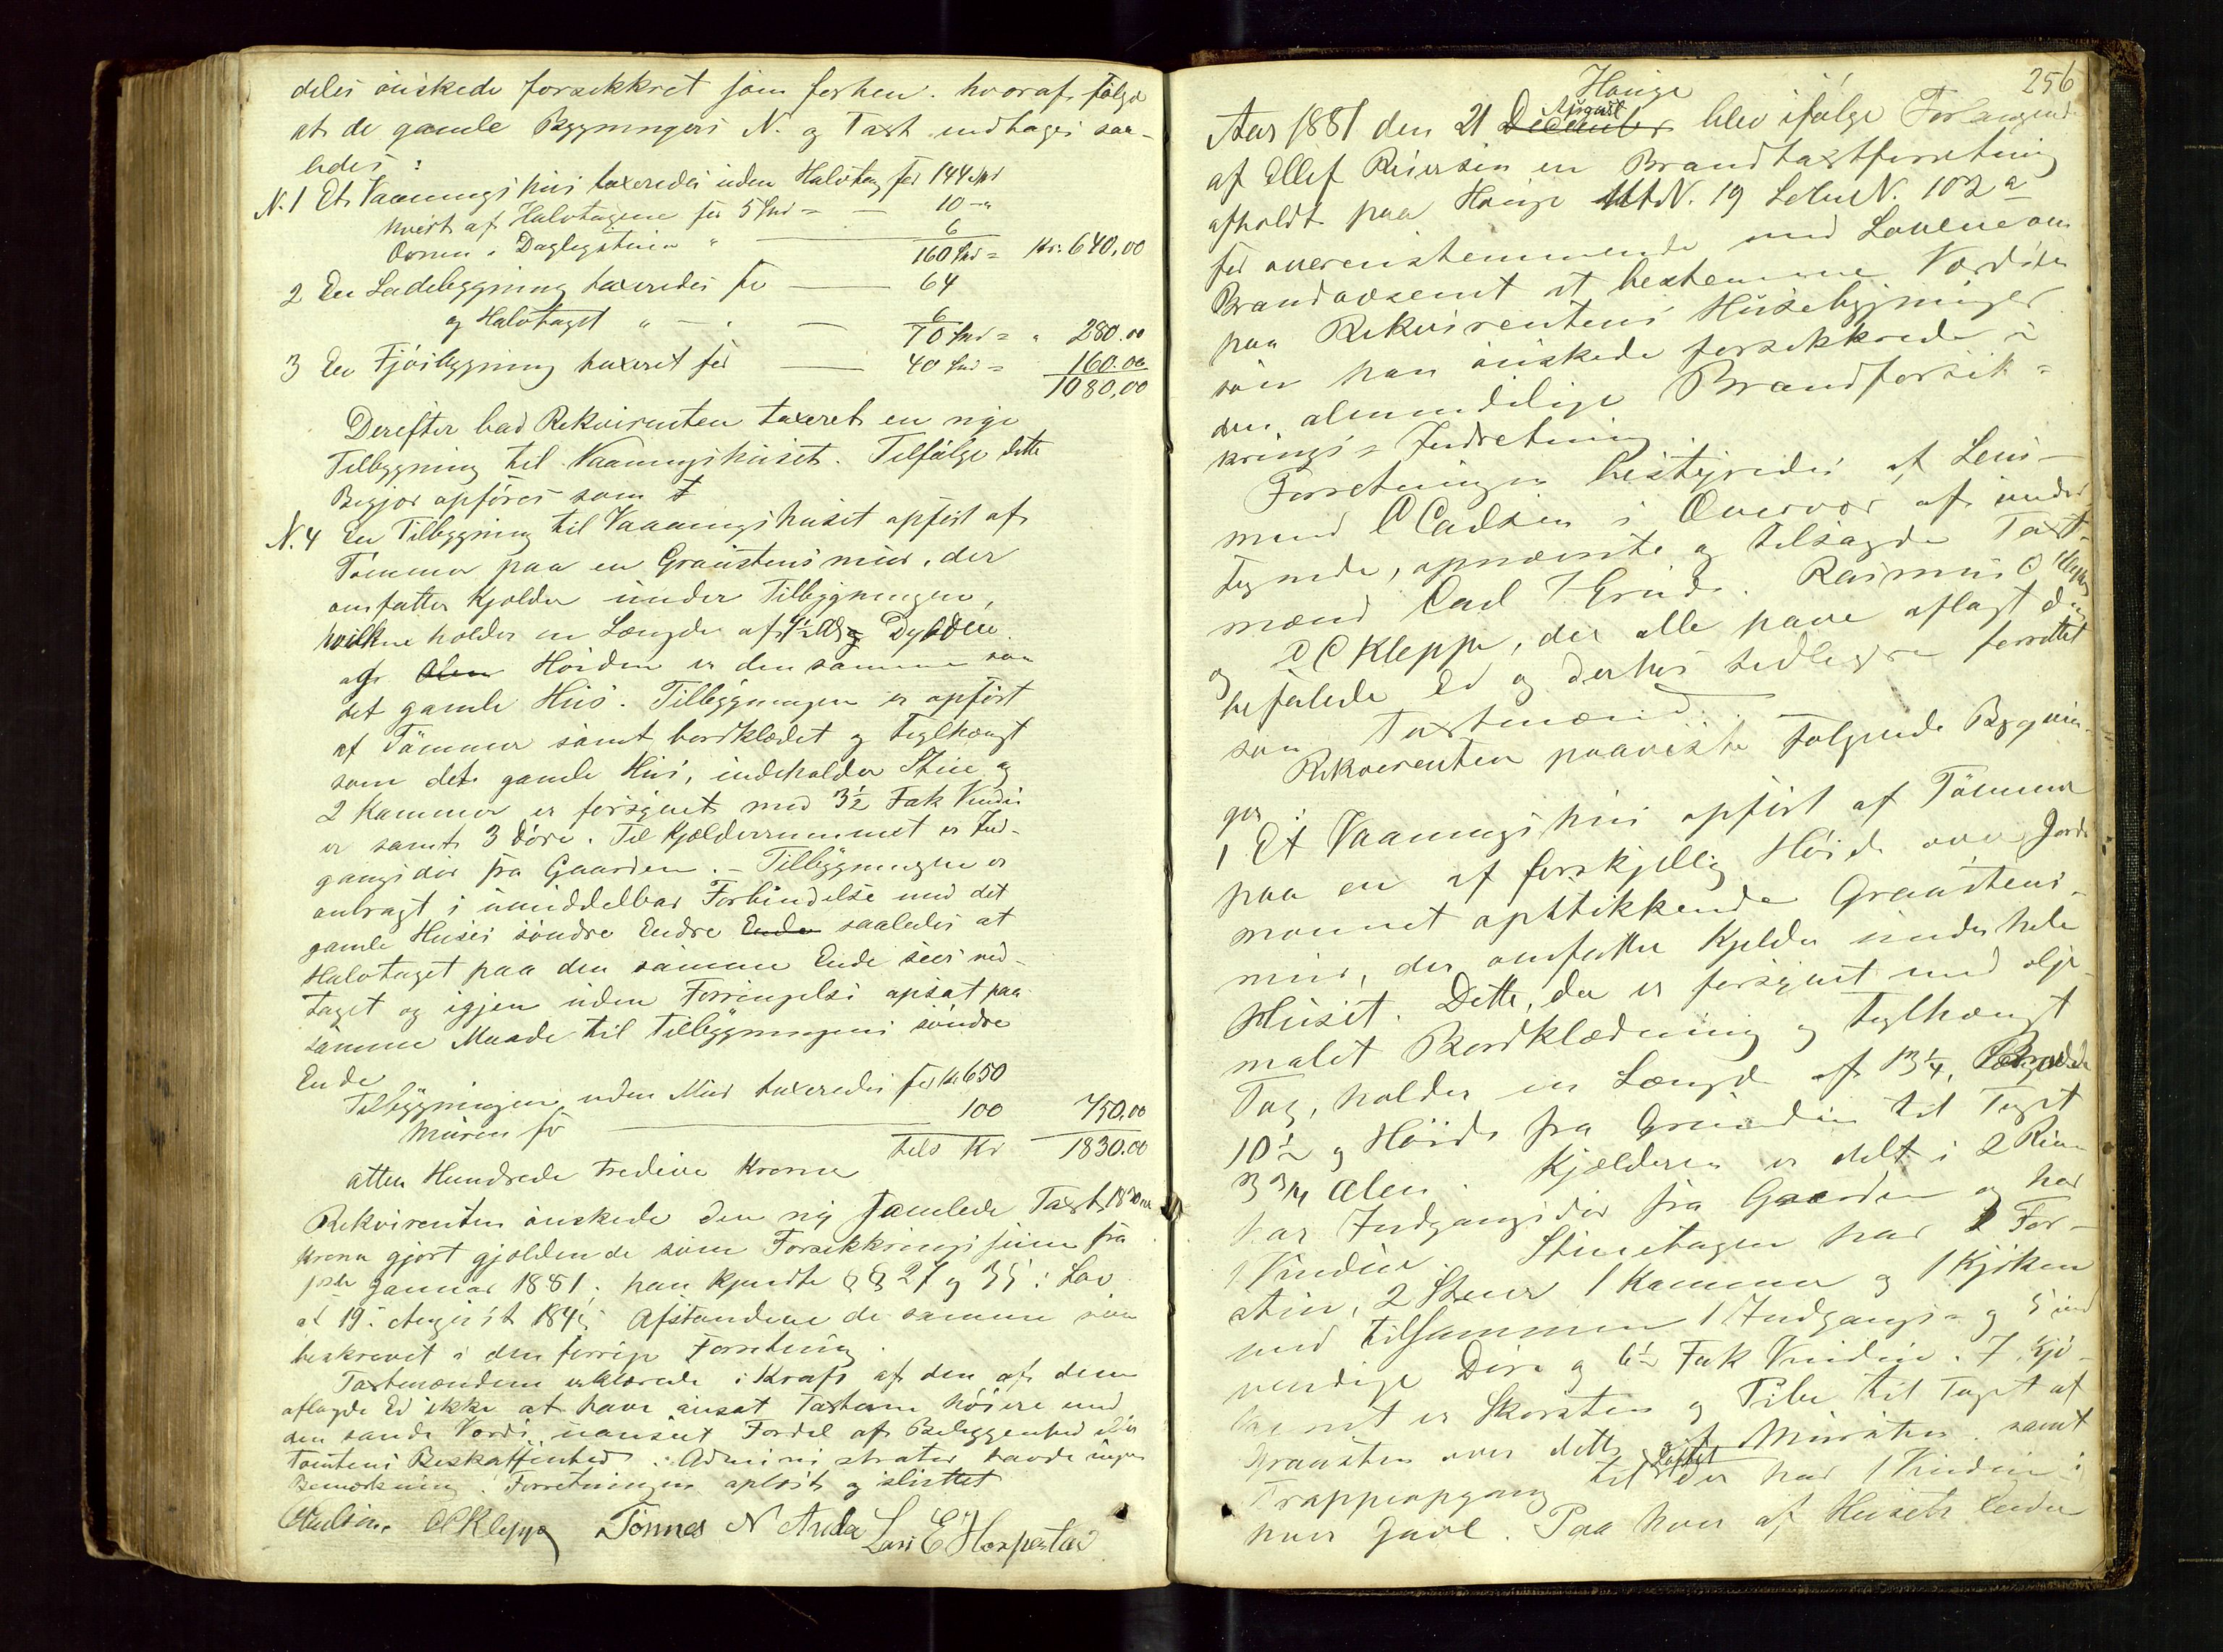 deles önskede forsekkret som forhen. hvoraf følge
at de gamle Bygningers N. og Taxt indtages saa-
ledes:
N. 1 Et Vaaningshus taxeredes uden Halvtag for 144 Spd
hvert af Halvtagene for 5 Spd = — 10 — "
Ovnen i Daglegstuen " — 6
160 Spd = Kr. 640,00
2 En Ladebygning taxeredes for — 64
og Halvtaget " — " — 6
70 Spd = " 280.00
3 En Fjösbygning taxeret for — 40 Spd = 160.00
1080,00
Derefter bad Rekvirenten taxeret en nye
Tilbygning til Vaaningshuset. Tilfølge dette
Begjær opføres som
N. 4 En Tilbygning til Vaaningshuset opfört af
Tømmer paa en Graastens mur, der
omfatter Kjelder under Tilbygningen,
hvilken holder en Længde af
Alen Höiden er den samme som
det gamle Hus. Tilbygningen er opfört
af Tömmer samt bordklædet og Teglhængt
som det gamle Hus, indeholder Stue og
2 Kammer er forsynet med 3½ Fak Vindu
er samt 3 Döre. Til Kjelderrummet er Ind-
gangsdör fra Gaarden. — Tilbygningen er
anbragt i umiddelbar Forbindelse med det
gamle Huses söndre Endre Ende saaledes at
Halvtaget paa den samme Ende sees ned-
taget og igjen uden Forringelse opsat paa
samme Maade til Tilbygningens söndre
Ende
Tilbygningen uden Mur taxeredes for Kr 650
Muren for — 100 750,00
tils Kr 1830.00
atten Hundrede tredive Kroner
Rekvirenten önskede den ny samlede Taxt 1830
Kroner gjort gjældende som Forsekkringssum fra
1ste Januar 1881; han kjendte §§ 27 og 35 i Lov
af 19. August 1845. Afstandene de samme som
beskrevet i den forrige Forretning.
Taxtmændene erklærede i Kraft af den af dem
aflagde Ed ikke at have ansat Taxterne höiere end
den sande Værdi, uanseet Fordel af Beliggenhed eller
Tomtens Beskaffenhed. Administrator havde ingen
Bemærkning. Forretningen oplæst og sluttet
CCarlsen. OCKleppe Tönnes N Anda Lars E Horpestad
256
Hauge
Aar 1881 den 21 December August blev ifølge Forlangende
af Ellef Reiersen en Brandtaxtforretning
afholdt paa Hauge Mt. N. 19 Löbe N. 102 a
for overensstemmende med Lovene om
Brandvæsenet at bestemme Værdien
paa Rekvirentens Husebygninger
som han önskede forsekkrede i
den almindelige Brandforsik-
krings-Indretning.
Forretningen bestyredes af Lens-
mand C Carlsen i Overvær af under-
tegnede, opnævnte og tilsagde Taxt-
mænd Carl T Grude. Rasmus O Kleppe
og O C Kleppe, der alle have aflagt den
befalede Ed og derhos tidligere forrettet
som Taxtmænd.
Rekvirenten paaviste følgende Bygnin-
ger:
1 Et Vaaningshus opfört af Tömmer
paa en af forskjellig Höide over Jord-
smonnet opstikkende Graastens-
mur, der omfatter Kjelder under hele
Huset. Dette, der er forsynet med olje-
malet Bordklædning og teglhængt
Tag, holder en Længde af 13¼, Bredde
10½ og Höide fra Grunden til Taget
3¾ Alen. Kjælderen er delt i 2 Rum
har Indgangsdör fra Gaarden og har
1 Vindue. Stueetagen har 1 For-
stue, 2 Stuer 1 Kammer og 1 Kjöken
med tilsammen 1 Indgangs- og 5 ind
vendige Döre og 6½ Fak Vinduer. I Kjö-
kenet er Skorsten og Pibe til Taget af
Graasten over dette af Mursten. samt
Trappeopgang til Loftet der har 1 Vindue i
hver Gavl. Paa hver af Husets Ender